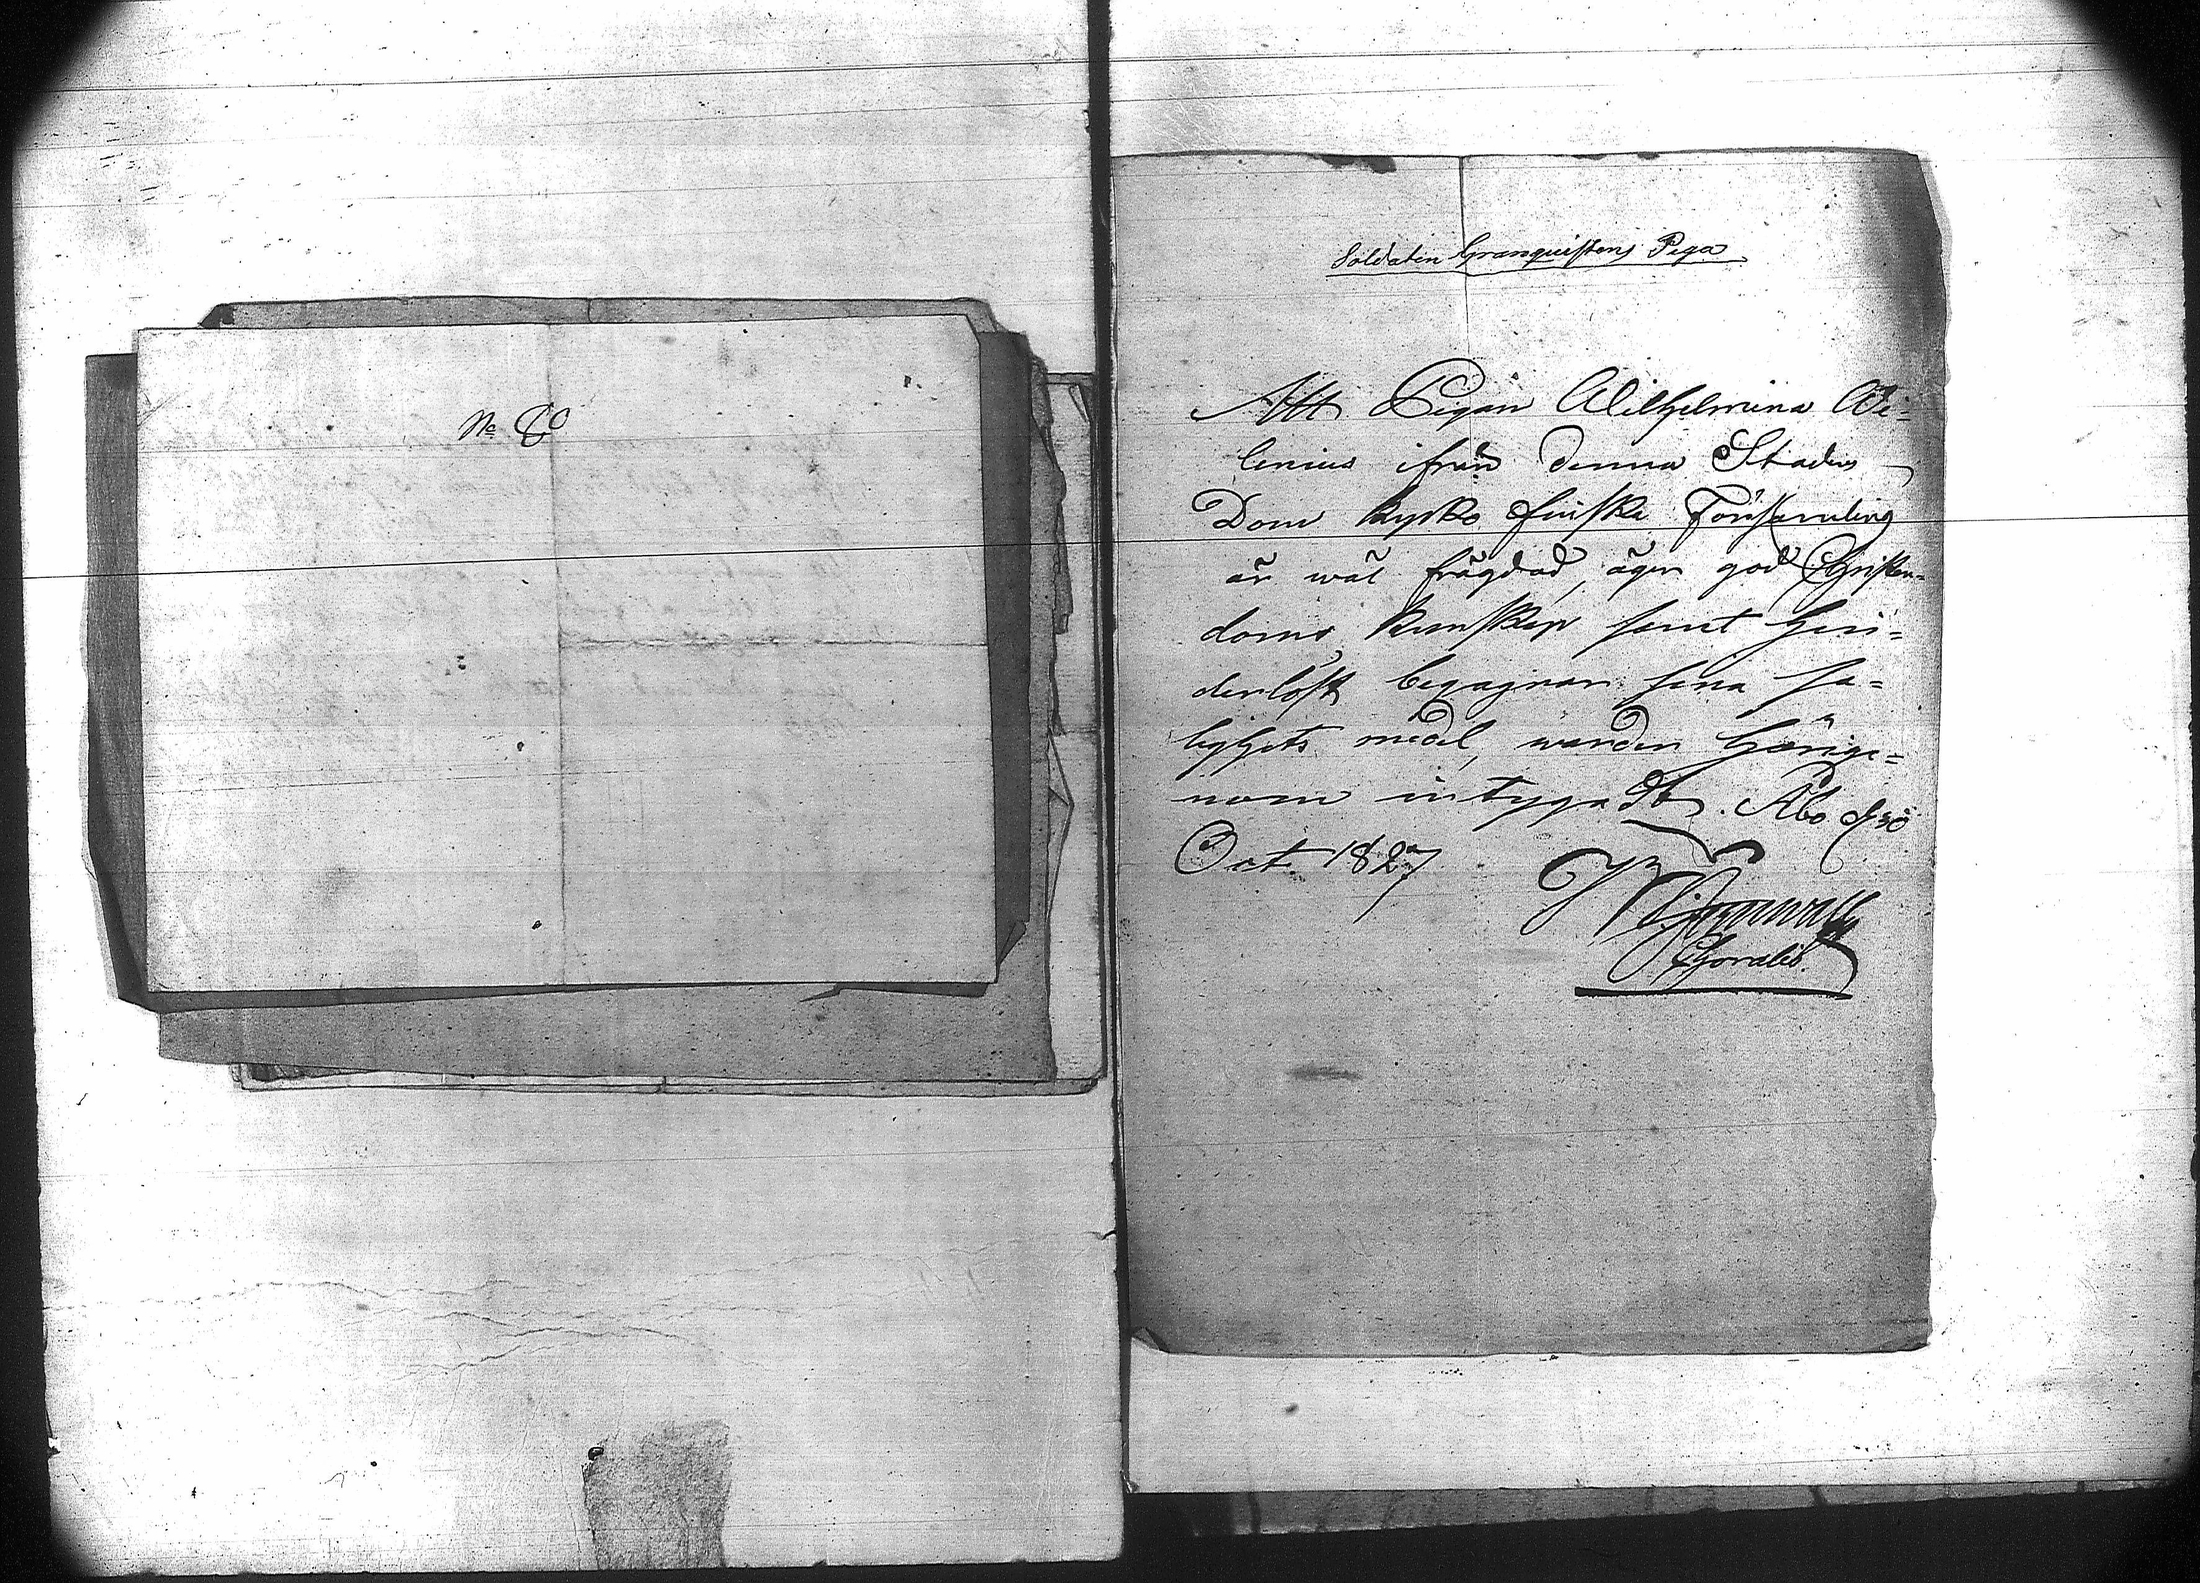 No 80
Soldaten Granquistens Piga
Att Pigan Wilhelmina We-
lenius ifrån denna Stadens
Dom kyrko finska Församling
är wäl frägdad, äger god Christen-
doms kunskap samt hin-
derlöst begagnar sina sa-
lighets medel, warder härige-
nom intygadt. Åbo d 30
Oct. 1827